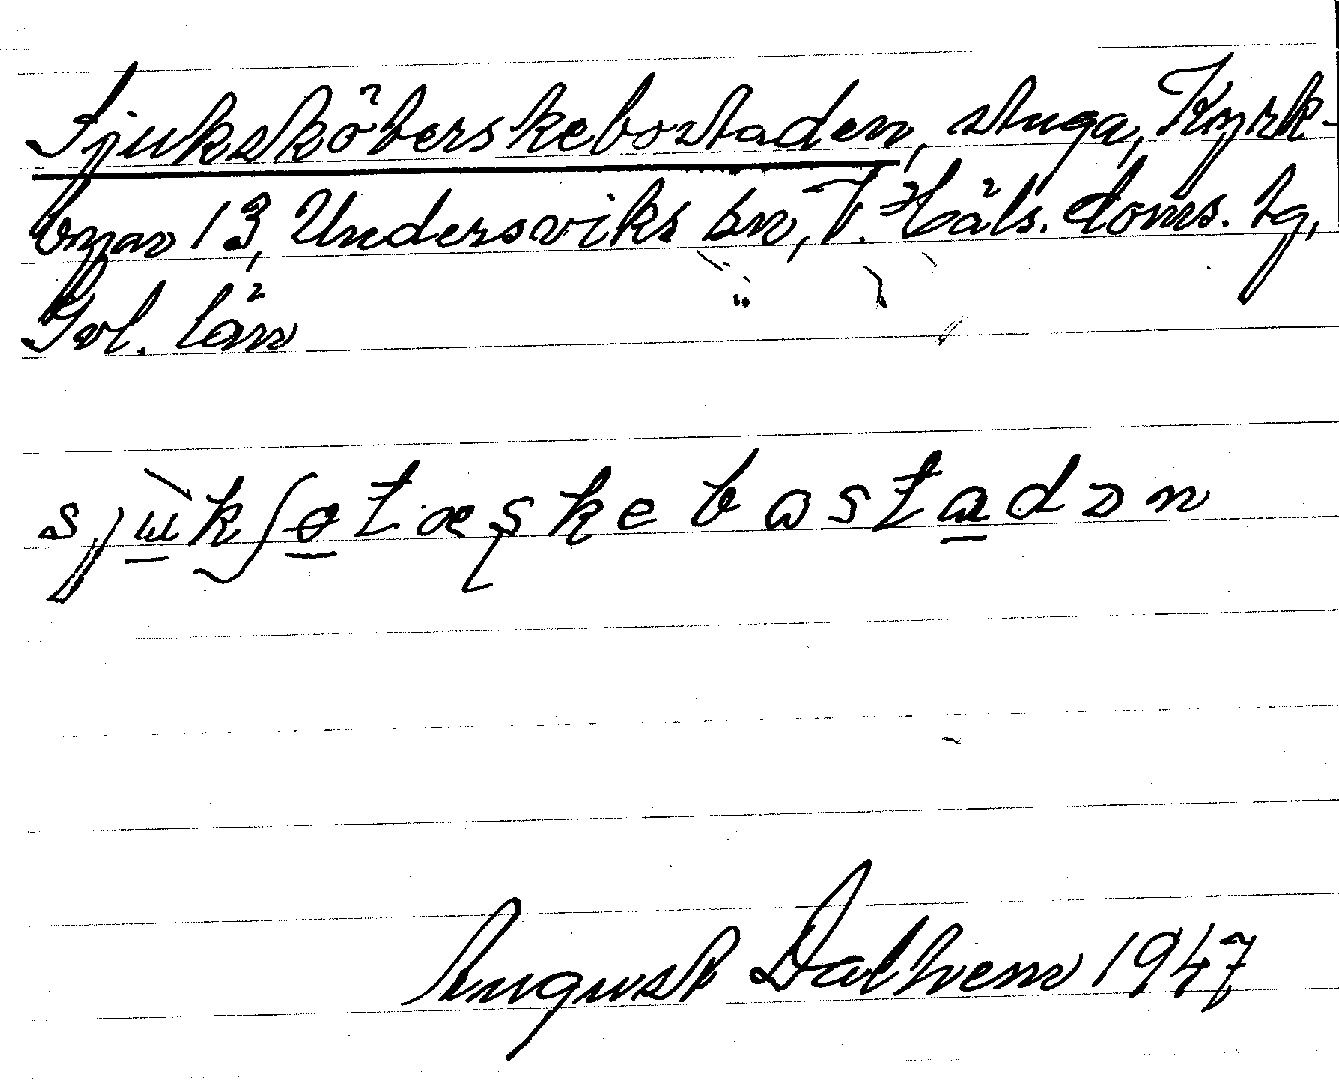 Sjuksköterskebostaden, stuga, Kyrk-
byn 13, Undersviks sn, V. Häls. doms. tg,
Gvl. län
sjʉkʃɵtæʂkebɷstadən
August Dalhem 1947